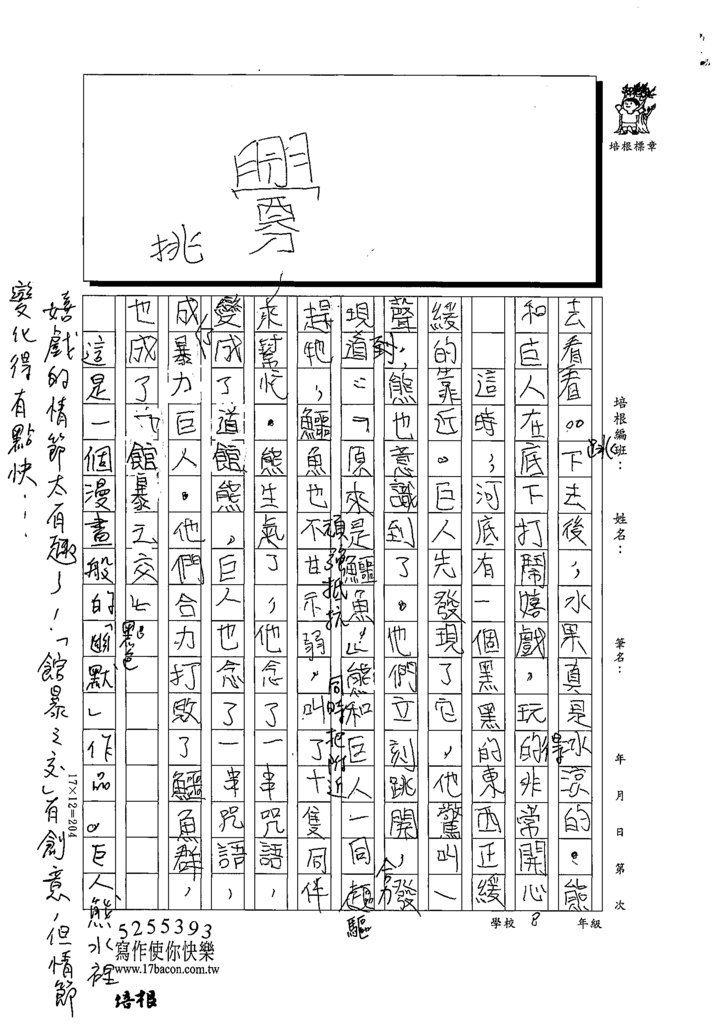 挑
去看看。。下去後，水果真是冰涼的。熊
和巨人在底下打鬧嬉戲，玩的非常開心
這時，河底有一個黑黑的東西正緩
緩的靠近。巨人先發現了它，他驚叫一
聲，熊也意識到了。他們立刻跳開，發
現道：「原來是鱷魚」熊和巨人一同趨
趕牠，鱷魚也不甘示弱，叫了十隻同伴
來幫忙。熊生氣了，他念了一串咒語，
變成了道館熊，巨人也念了一串咒語，
成暴力巨人。他們合力打敗了鱷魚群，
也成了「館暴之交」
跳
得
到
合力
驅
頑強抵抗
同時把附近
黑色
這是一個漫畫般的「幽默」作品。巨人熊水裡
嬉戲的情節太有趣了！「館暴之交」有創意，但情節
變化得有點快！
培根標章
培根編班：
姓名：
筆名：
年 月 日 第 次
學校 8 年級
17×12=204
5255393
寫作使你快樂
www.17bacon.com.tw
培根